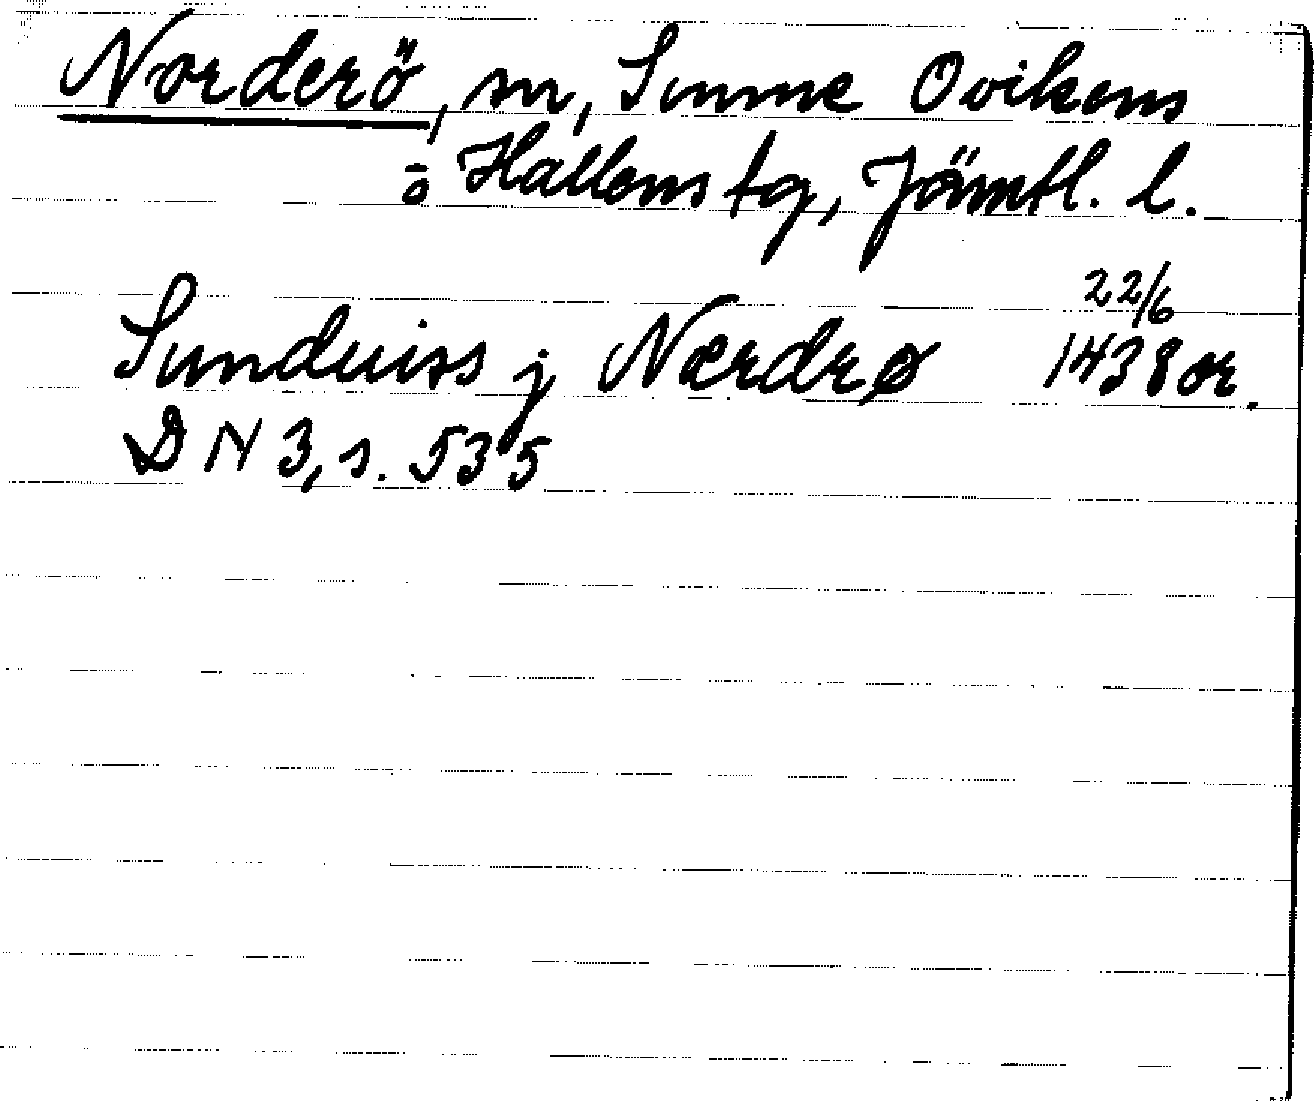 Norderö, sn, Sunne Ovikens
o Hallens tg, Jämtl. l.
22/6
Sunduiss j Nærdrø 1438 or.
DN 3, s. 535